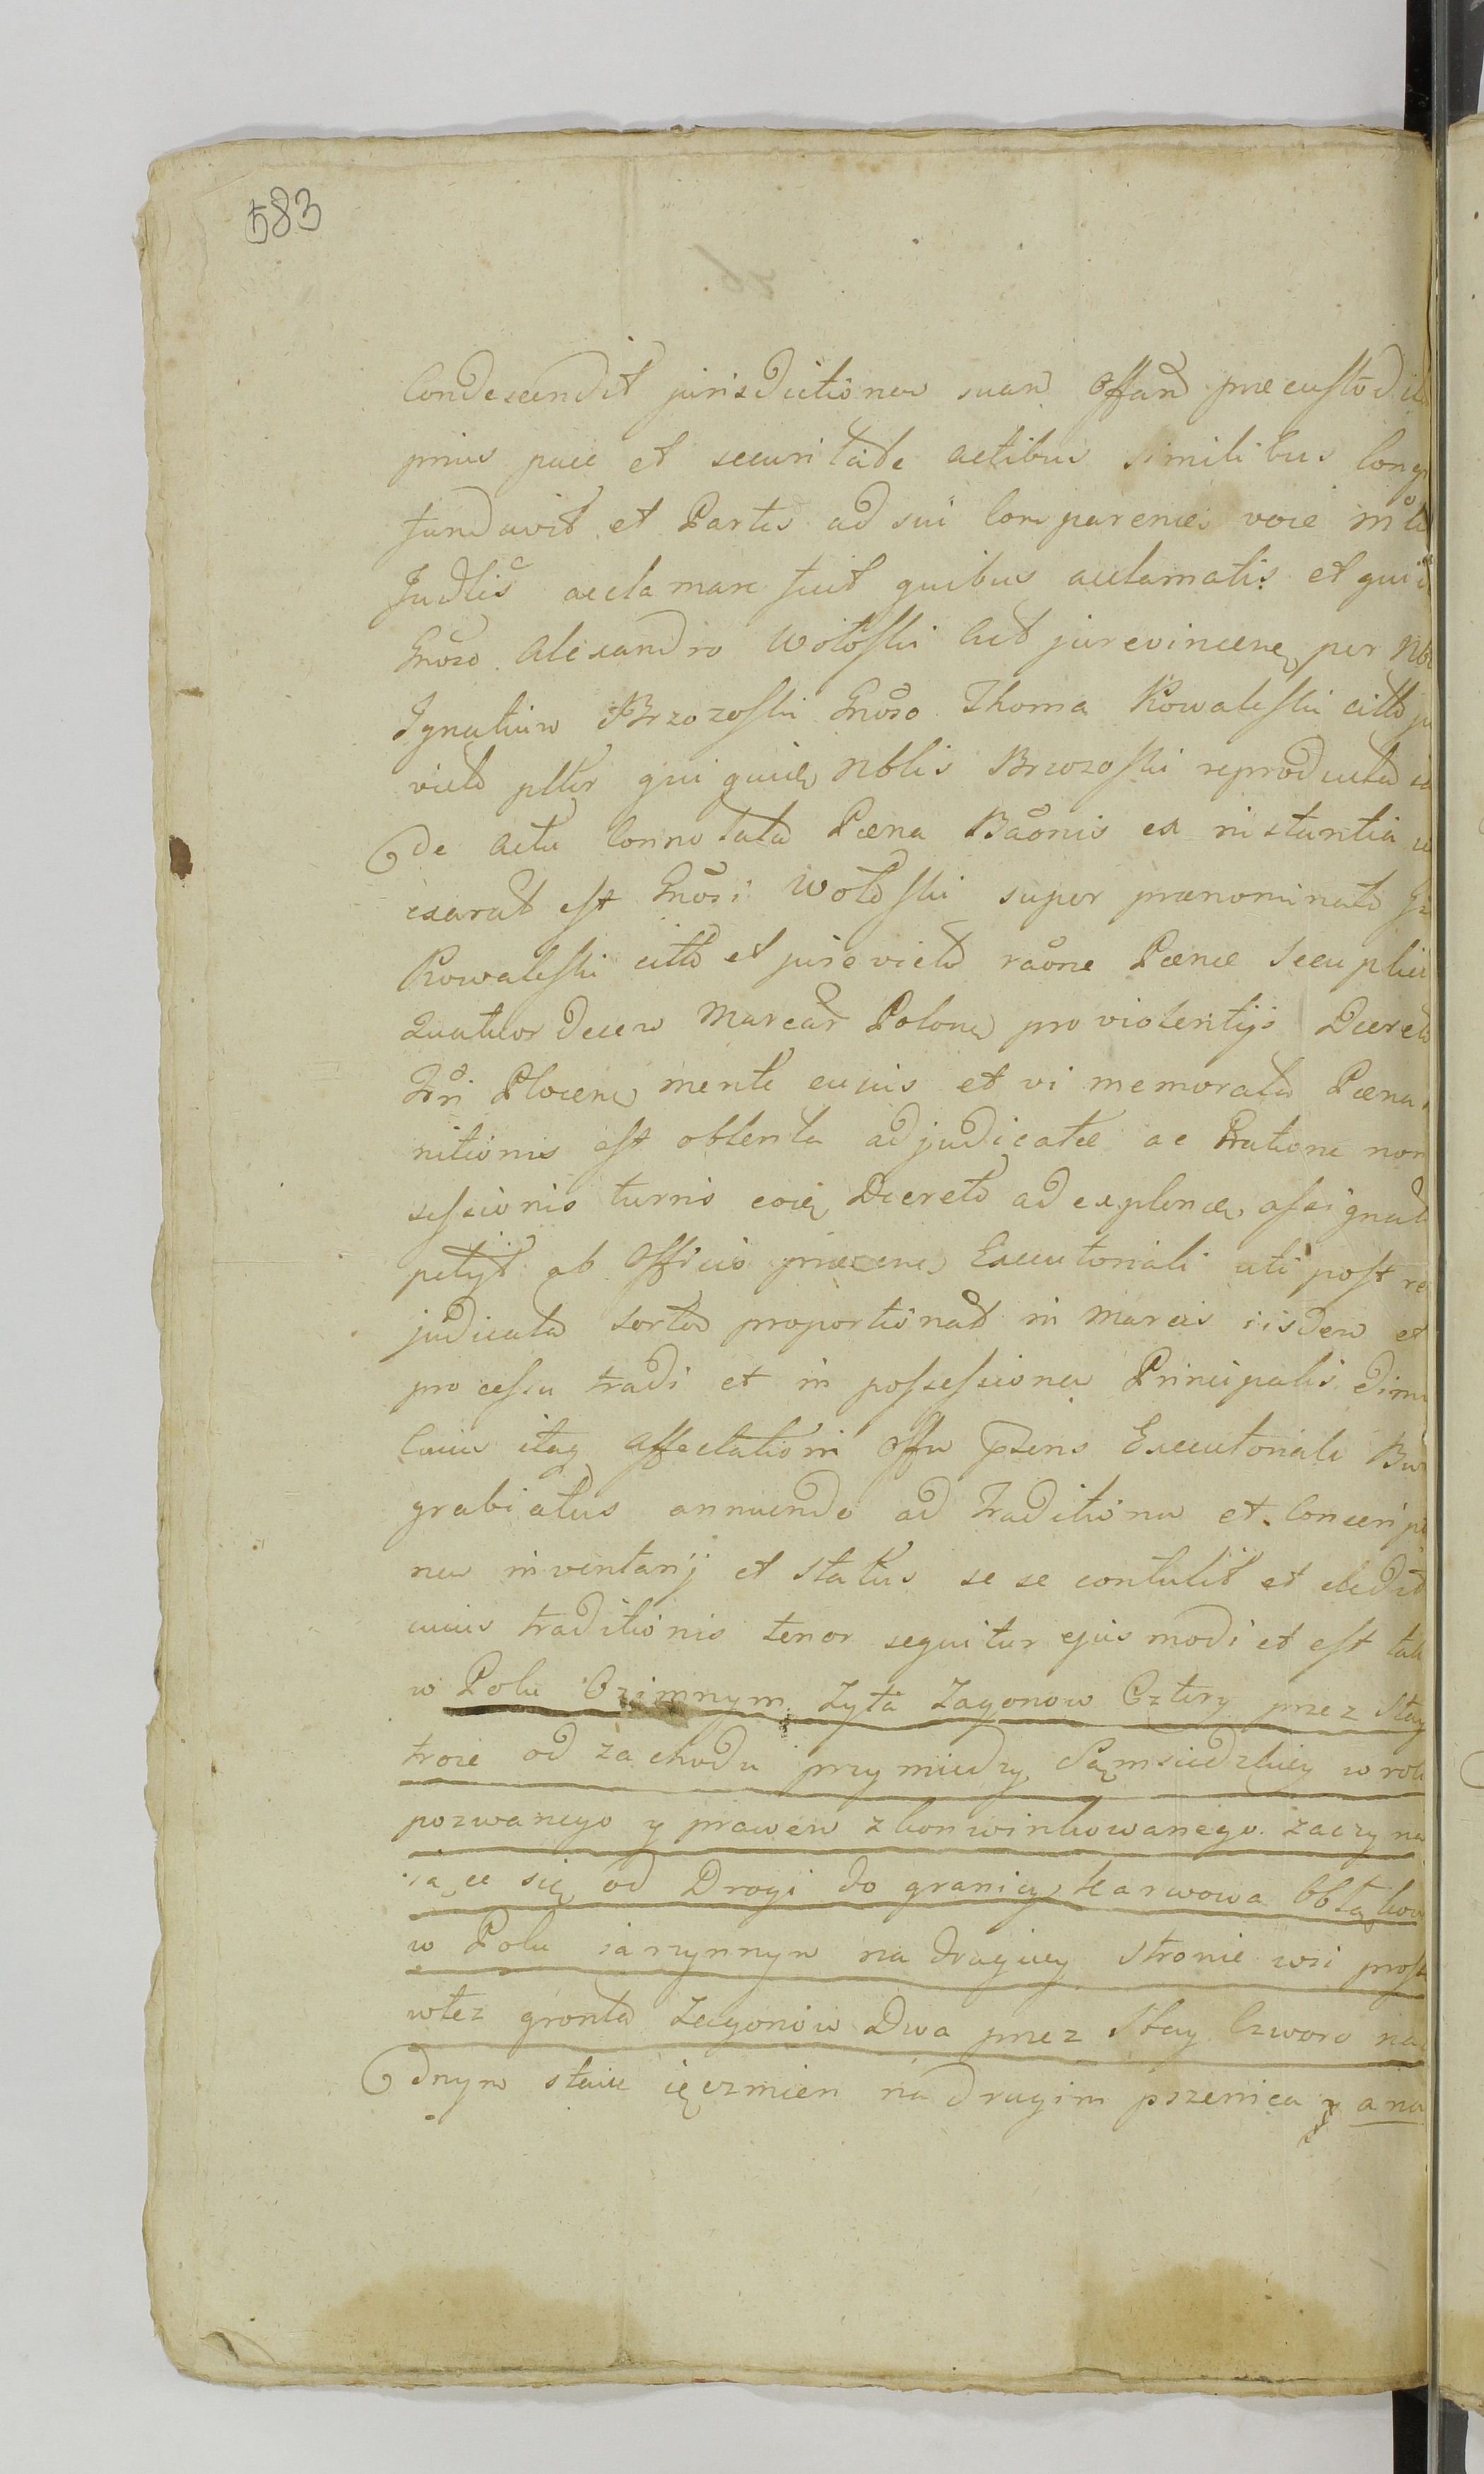 583
Condescendit jurisdictionem suam Offam præcustodita
prius pace et securitate actibus similibus Congr
fundavit et Partes ad sui Comparencē voce mʳˡⁱ
Judlis acclamare fecit quibus acclamatis et quid
Gnoso Alexandro Wołoski Act jurevincenę per Nbi
Ignatium Brzozoski Gnoso Thoma Kowaleski citto ju
victo ptter qui quidę Nblis Brzozoski reproducta
de Actu Connotata Pæna Baonis ex instantia
exarat est Gnosi Wołoski super prænominato G
Kowaleski citto et jurevicto raone Pænæ Secuplici
Quatuor Decem Marcar Polonę pro violentijs Decreto
Trri Plocenę mente cuius et vi memorata Pæna
nitionis est obtenta adjudicatæ ac Ratione non
sessionis turris eoię Decreto ad explenđ assignatæ
petijt ab Officio præsenę Executoriali uti post re
judicata Sorte proportionat in Marcis iisdem et
processu tradi et in possessionem Principalis dimi
Cuius itaq Affectationi Offm Præns Executoriale Bur
grabiatus annuendo ad Traditionem et Conscrip
nem inventarij et status se se contulit et dedit
cuius traditionis tenor sequitur ejusmodi et est talis
w Polu Ozimnym Zyta Zagonow Cztery przez Stay
troie od zachodu przy miedzy Sąmsiedzkiey w roli
pozwanego y prawem zkonwinkowanego. zaczyna
iące się od Drogi do granicy Karwowa Obłąkow
w Polu iarzynnym na drugiey Stronie wsi prost
wtez gronta Zagonow Dwa przez Stay Czworo na
dnym staiu ięczmien na drugim pszenica a na